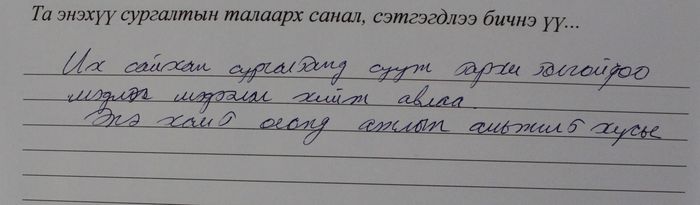 Та энэхүү сургалтын талаарх санал, сэтгэгдлээ бичнэ үү...
Их сайхан сургалтанд сууж тархи толгойдоо
мэдлэг мэдээлэл хийж авлаа.
Энэ хамт олонд ажлын амжилт хүсье